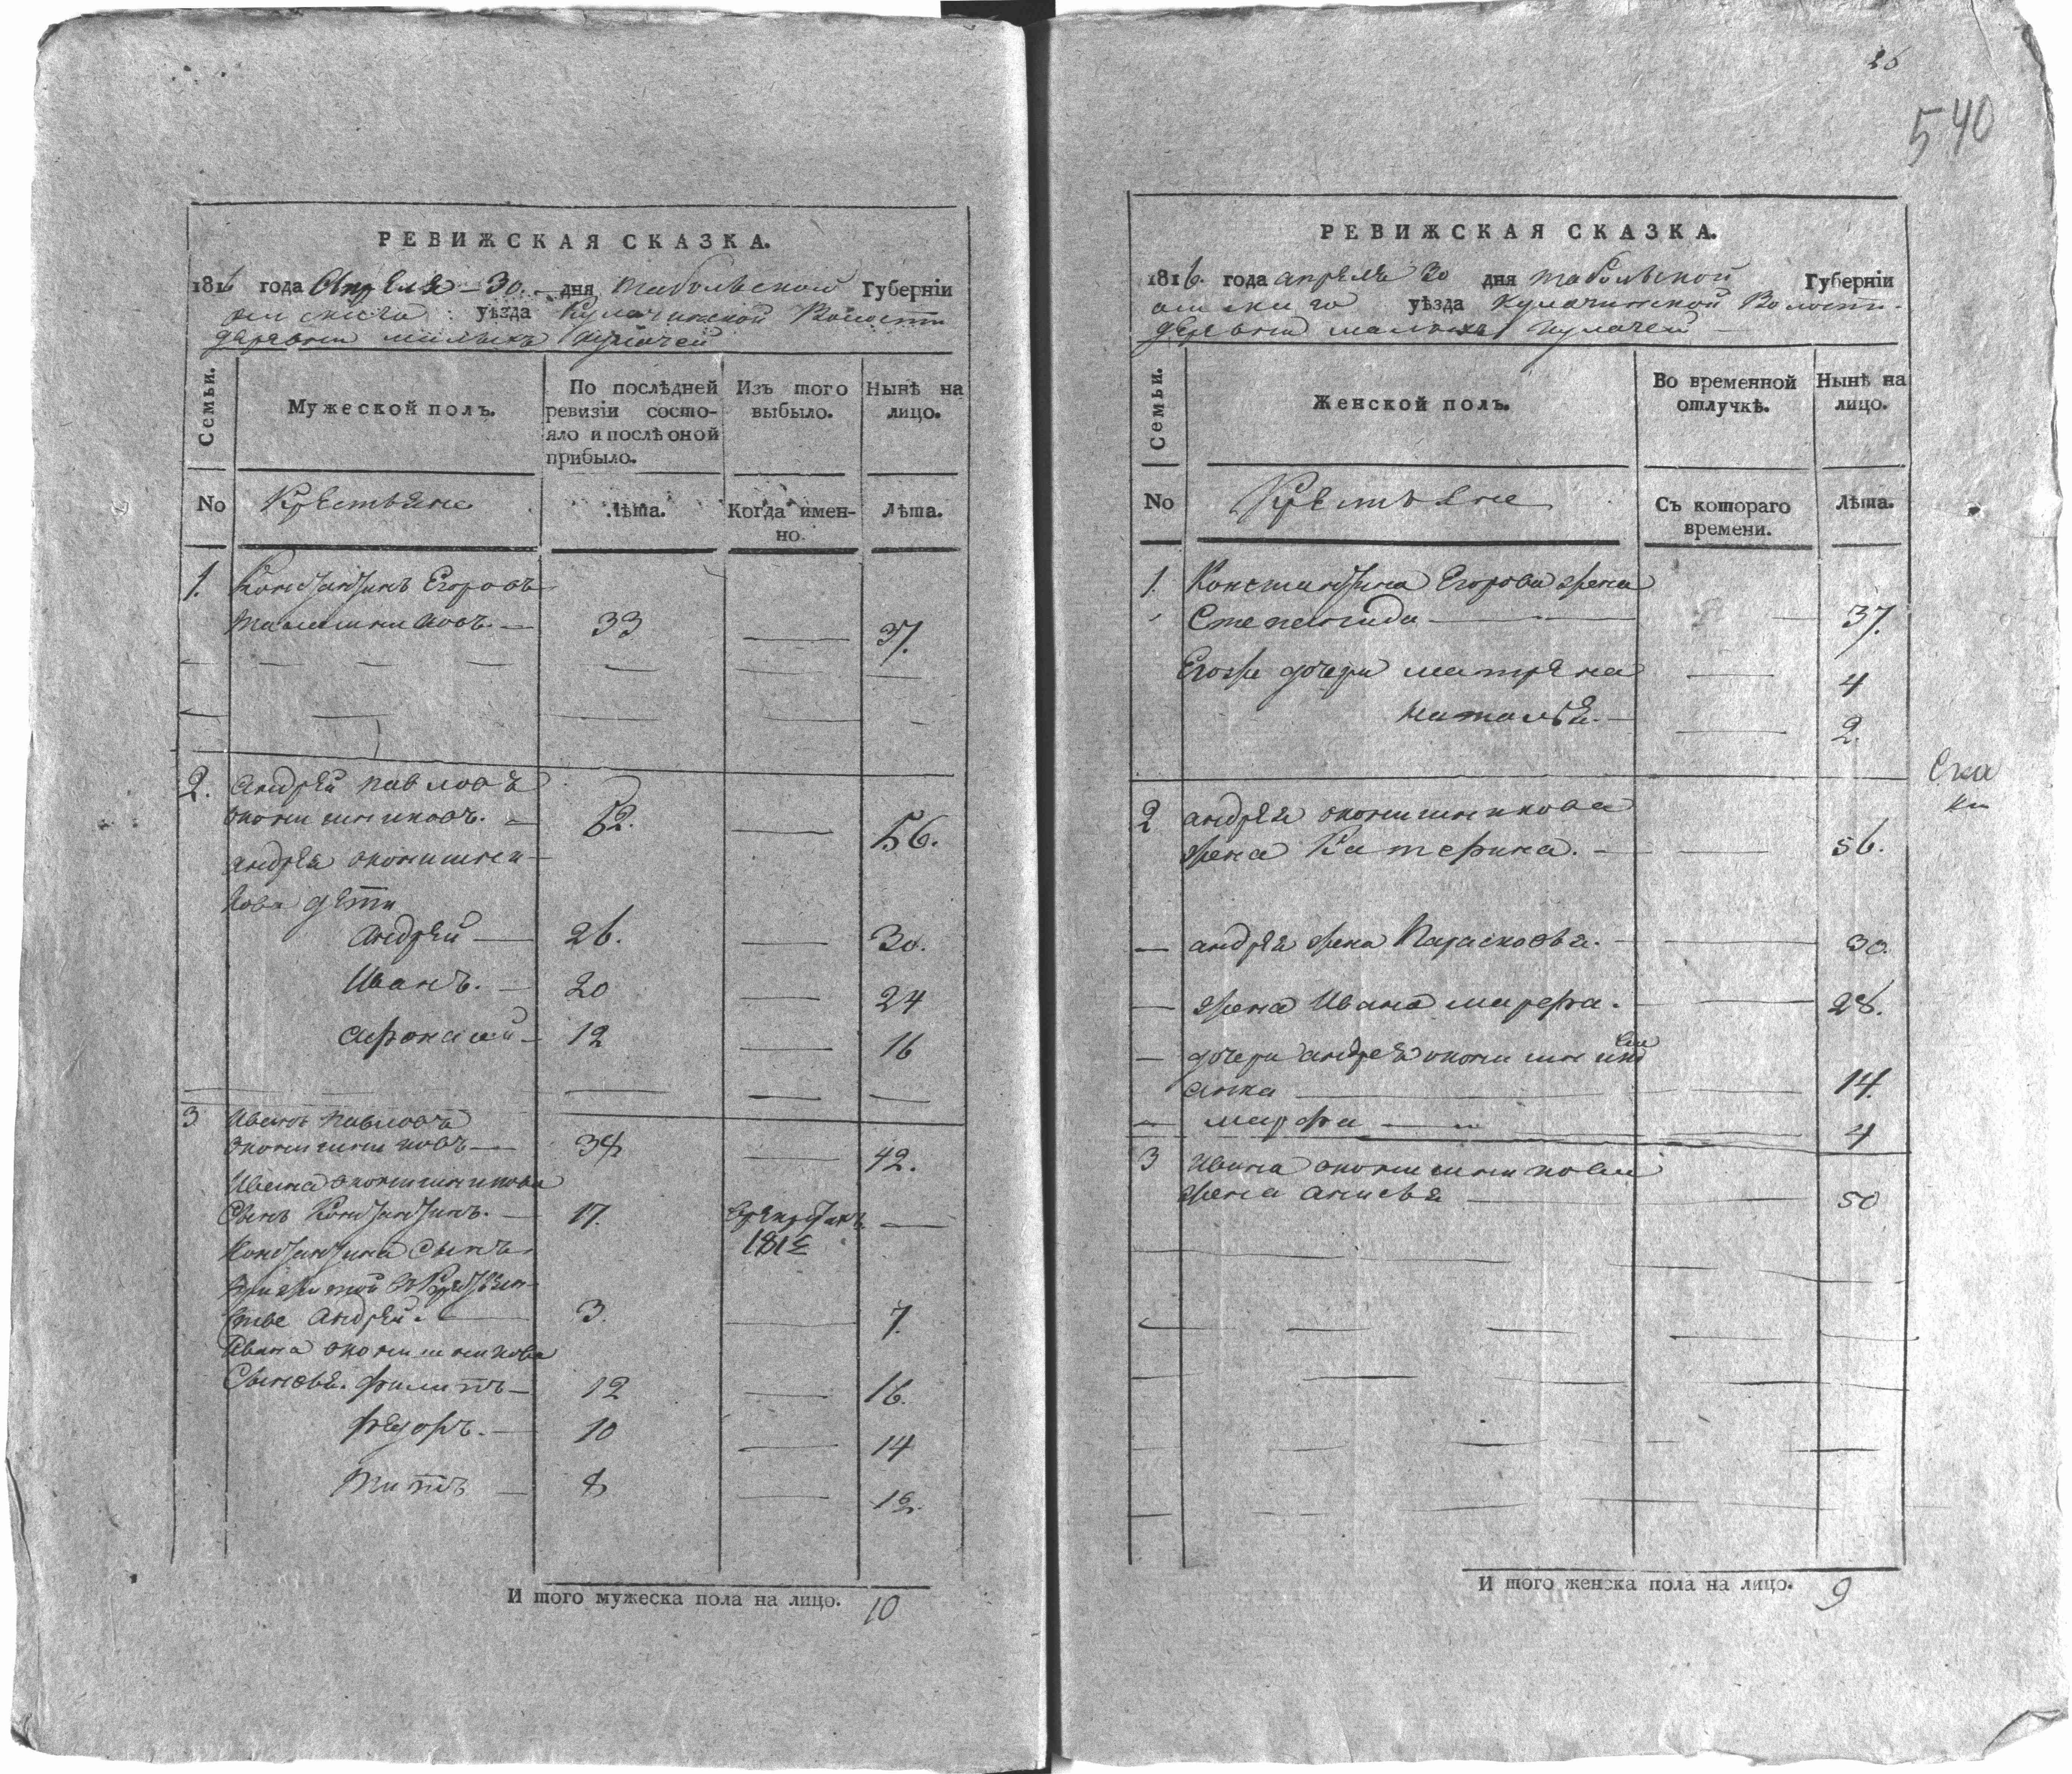 РЕВИЖСКАЯ СКАЗКА.
1816 года Апреля 30. дня тобольской Губерніи
омскаго уѣзда Кулачинской Волости
деревни малыхъ кулачей
Семьи.
Мужеской полъ.
По послѣдней ревизіи состо-
яло и послѣ оной
прибыло.
Изъ того
выбыло.
Нынѣ на
лицо.
No Крестьяне
Лѣта.
Когда имен-
но.
Лѣта.
1. Константинъ Егоровъ
33 37.
2. Андрей павловъ
оконишниковъ. 52. 56.
андрея оконишни-
кова дети
Андрей 26. 30.
Иванъ. 20 24
Афонасей 12 16
3 Иванъ павловъ
оконишниковъ 38 42.
Ивана оконишникова
Сынъ Константинъ. 17. Врекрутахъ
181
Константина Сынъ
Андрей. 3. 7.
Ивана оконишникова
Сыновья. филипъ 12 16.
федоръ. 10 14
титъ 8 12.
И того мужеска пола на лицо. 10
26
540
РЕВИЖСКАЯ СКАЗКА.
1816. года апреля 30 дня тобольской Губерніи
омскаго уѣзда Кулачинской Волости
деревни малыхъ кулачей
Семьи.
Женской полъ.
Во временной
отлучкѣ.
Нынѣ на
лицо.
No Крестьяне
Съ котораго
времени.
Лѣта.
1. Константина Егорова жена
Степанида 37.
Егоже дочери матрена 4
наталья. 2.
2 андрея оконишникова
жена Катерина. 56.
андрея жена Парасковья. 30.
жена Ивана марфа. 28.
дочери андрея оконишникова
анна 14.
марфа 4
3 Ивана оконишникова
жена анисья 50
И того женска пола на лицо. 9